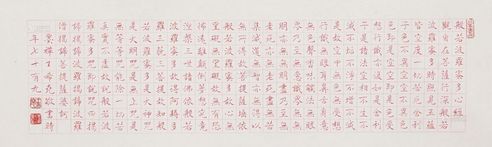 般若波羅蜜多心經
觀自在菩薩行深般若
波羅蜜多時照見五蘊
皆空度一切苦厄舍利
子色不異空空不異色
色即是空空即是色受
想行識亦復如是舍利
子是諸法空相不生不
滅不垢不淨不增不減
是故空中無色無受想
行識無眼耳鼻舌身意
無色聲香味觸法無眼
界乃至無意識界無無
明亦無無明盡乃至無
老死亦無老死盡無苦
集滅道無智亦無得以
無所得故菩提薩埵依
般若波羅蜜多故心無
罣礙無罣礙故無有恐
怖遠離顛倒夢想究竟
涅槃三世諸佛依般若
波羅蜜多故得阿耨多
羅三藐三菩提故知般
若波羅蜜多是大神咒
是大明咒是無上咒是
無等等咒能除一切苦
真實不虛故說般若波
羅蜜多咒即說咒曰揭
諦揭諦波羅揭諦波羅
僧揭諦菩提薩婆訶
敬書時
年七十有九